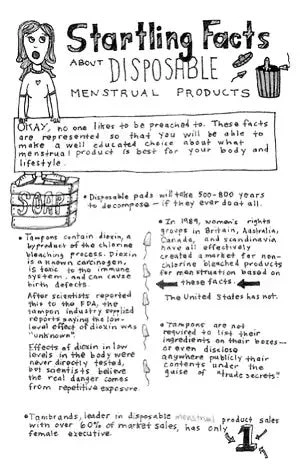 Startling Facts
ABOUT DISPOSABLE
MENSTRUAL PRODUCTS
OKAY, no one likes to be preached to. These facts
are represented so that you will be able to
make a well educated choice about what
menstrual product is best for your body and
lifestyle.
SOAP
• Disposable pads will take 500-800 years
to decompose – if they ever do at all.
• Tampons contain dioxin, a
byproduct of the chlorine
bleaching process. Dioxin
is a known carcinogen,
is toxic to the immune
system, and can cause
birth defects.
After scientists reported
this to the FDA, the
tampon industry supplied
reports saying the low-
level effect of dioxin was
"unknown".
Effects of dioxin in low
levels in the body were
never directly tested,
but scientists believe
the real danger comes
from repetitive exposure.
• In 1989, women's rights
groups in Britain, Australia,
Canada, and Scandinavia
have all effectively
created a market for non-
chlorine bleached products
for menstruation based on
these facts.
The United States has not.
• Tampons are not
required to list their
ingredients on their boxes –
or even disclose
anywhere publicly their
contents under the
guise of "trade secrets"
• Tambrands, leader in disposable menstrual product sales
with over 60% of market sales, has only 1
female executive.